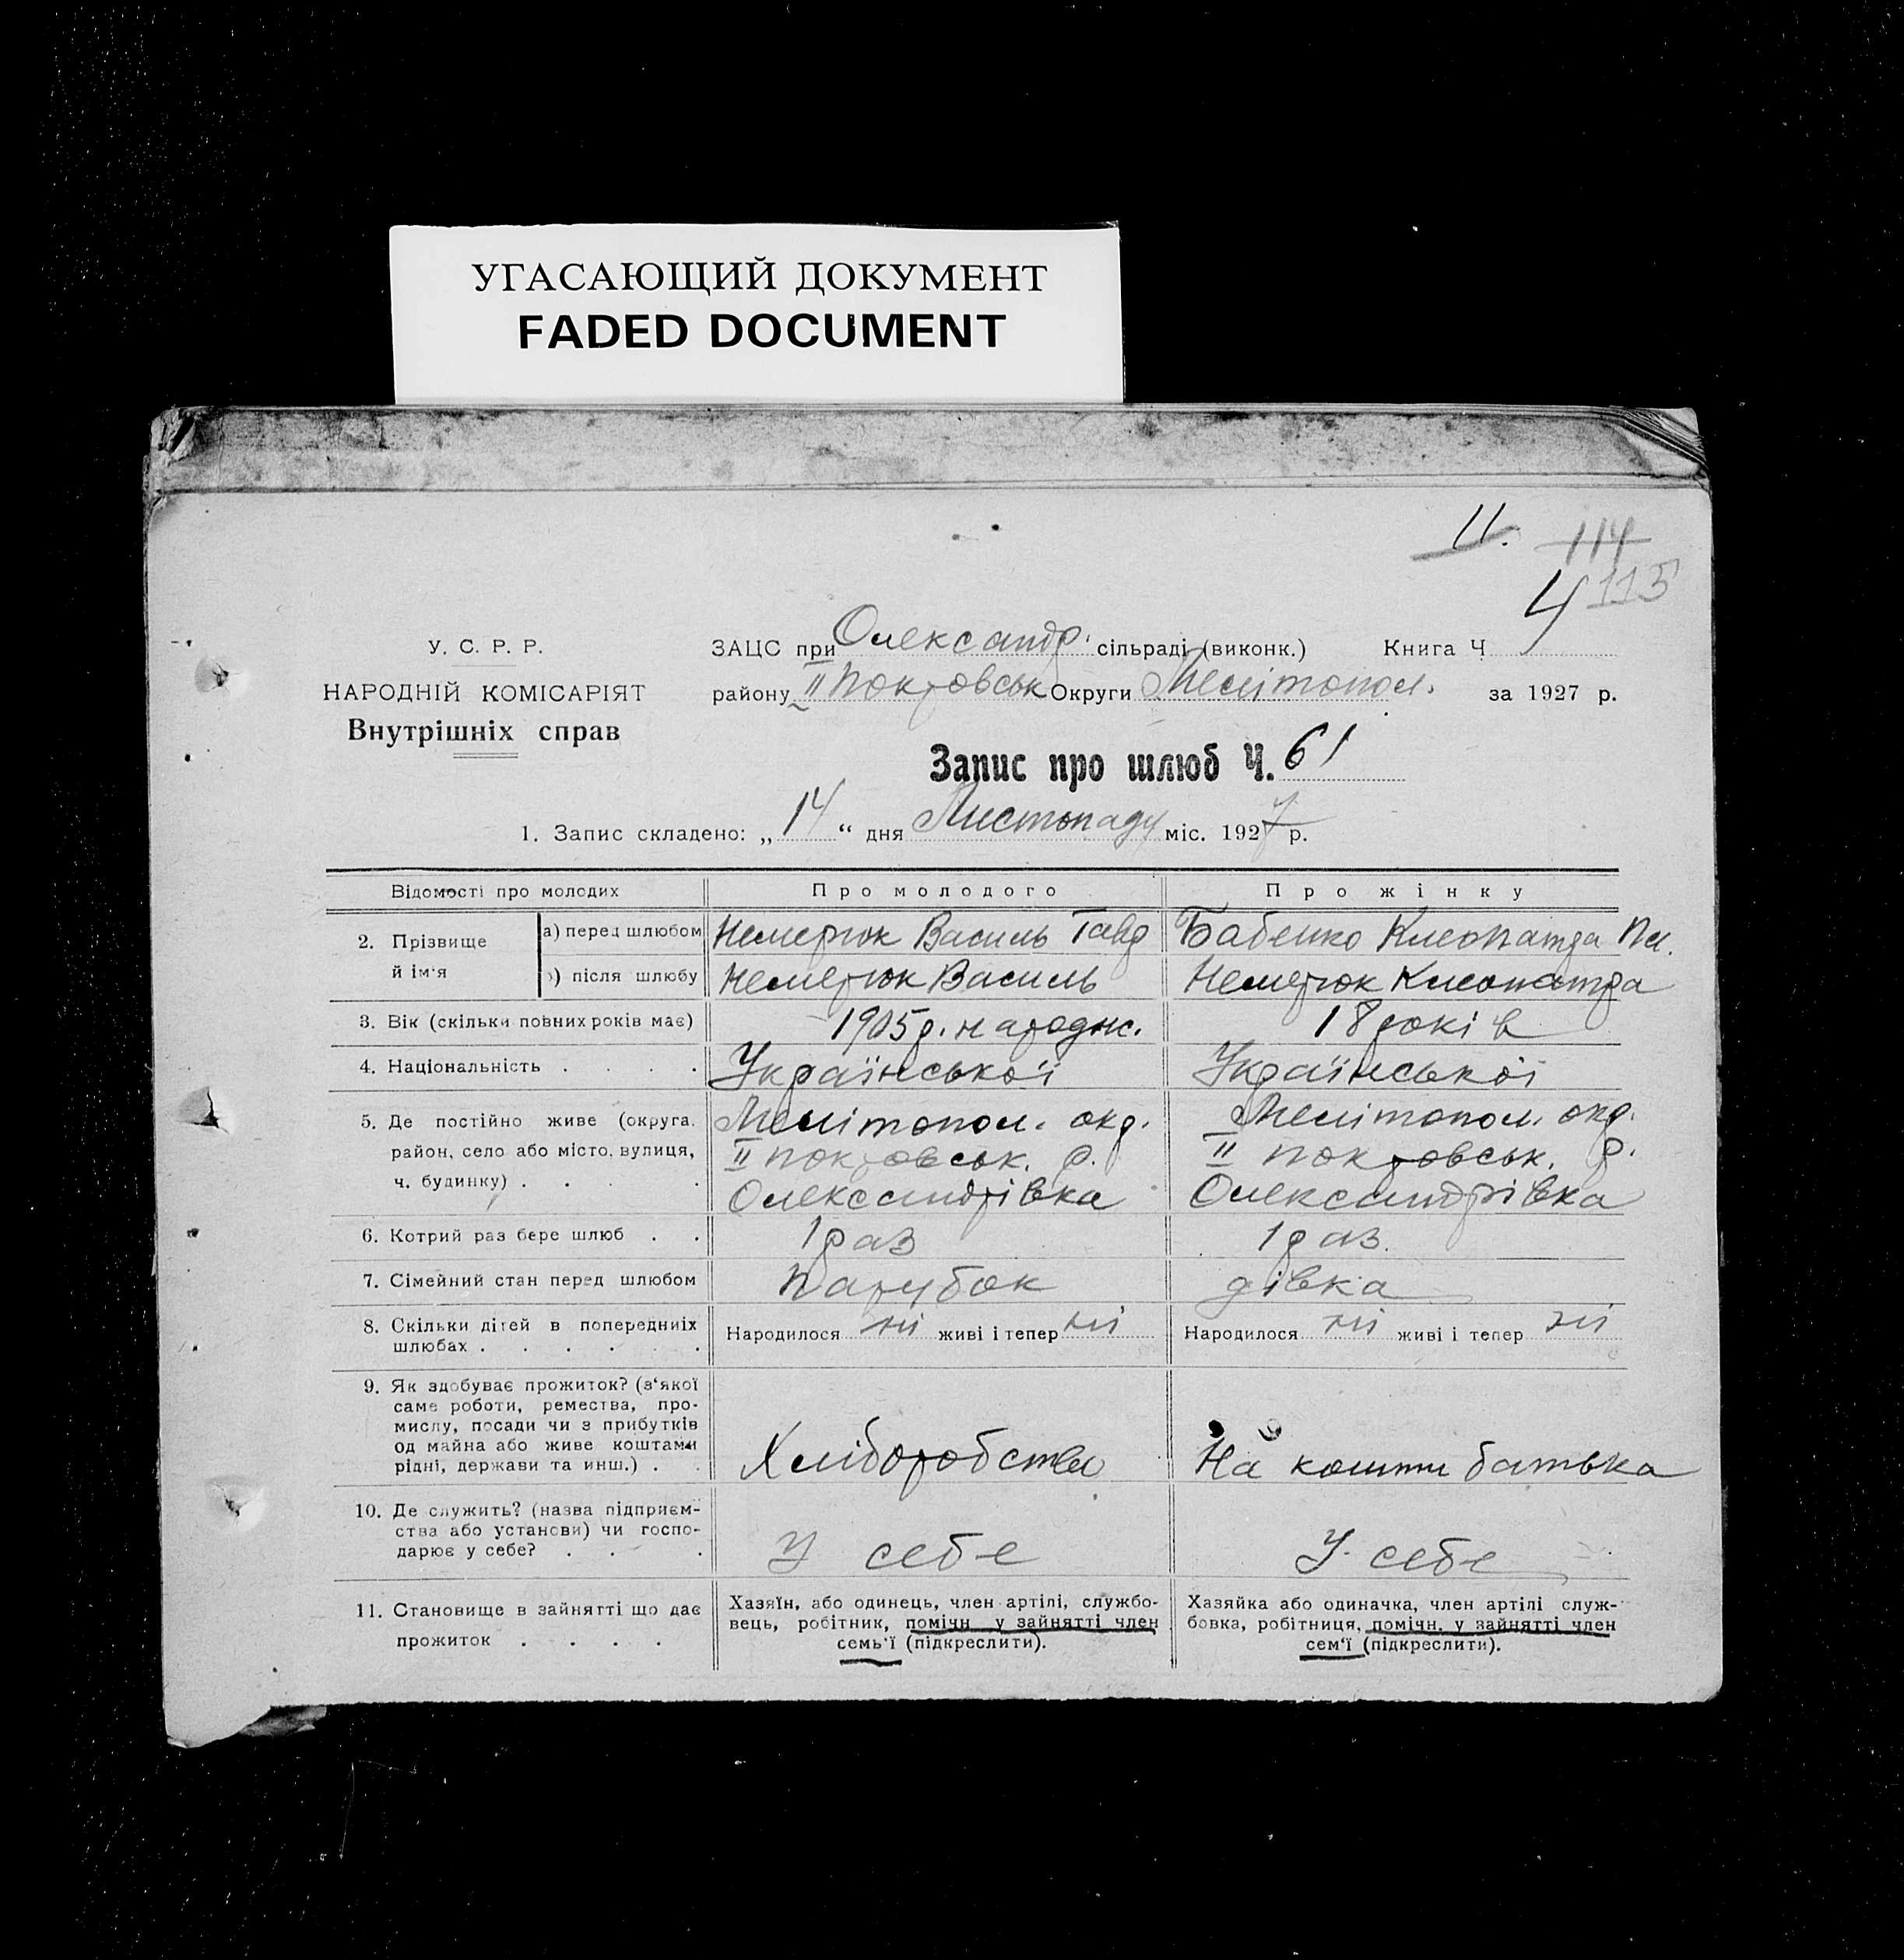 УГАСАЮЩИЙ ДОКУМЕНТ
FADED DOCUMENT
11. 114
4 115
У. С. Р. Р.
НАРОДНІЙ КОМІСАРІЯТ
Внутрішніх справ
ЗАЦС при Олександр. сільраді (виконк.) Книга Ч
району II Покровськ Округи Мелітопол. за 1927 р.
Запис про шлюб Ч. 61
1. Запис складено: „14“ дня Листопаду міс. 1927 р.
Відомості про молодих Про молодого Про жінку
2. Прізвище й ім'я
а) перед шлюбом Немерюк Василь Гавр Бабенко Клеопатра Пл.
в) після шлюбу Немерюк Василь Немерюк Клеопатра
3. Вік (скільки повних років має) 1905 р. народж. 18 років
4. Національність . . . . Української Української
5. Де постійно живе (округа, Мелітопол. окр. Мелітопол. окр.
район, село або місто, вулиця, II Покровськ. р. II Покровськ. р.
ч. будинку) . . . . Олександрівка Олександрівка
6. Котрий раз бере шлюб . . 1 раз 1 раз.
7. Сімейний стан перед шлюбом Парубок дівка
8. Скільки дітей в попередниіх Народилося ні живі і тепер ні Народилося ні живі і тепер ні
шлюбах . . . . . .
9. Як здобуває прожиток? (з'якої
саме роботи, ремества, про-
мислу, посади чи з прибутків
од майна або живе коштами
рідні, держави та инш.) . . Хліборобство На кошти батька
10. Де служить? (назва підприєм-
ства або установи) чи госпо-
дарює у себе? . . . У себе У себе
11. Становище в зайнятті що дає
прожиток . . . .
Хазяїн, або одинець, член артілі, службо-
вець, робітник, помічн. у зайнятті член
семь'ї (підкреслити).
Хазяйка або одиначка, член артілі служ-
бовка, робітниця, помічн. у зайнятті член
сем'ї (підкреслити).